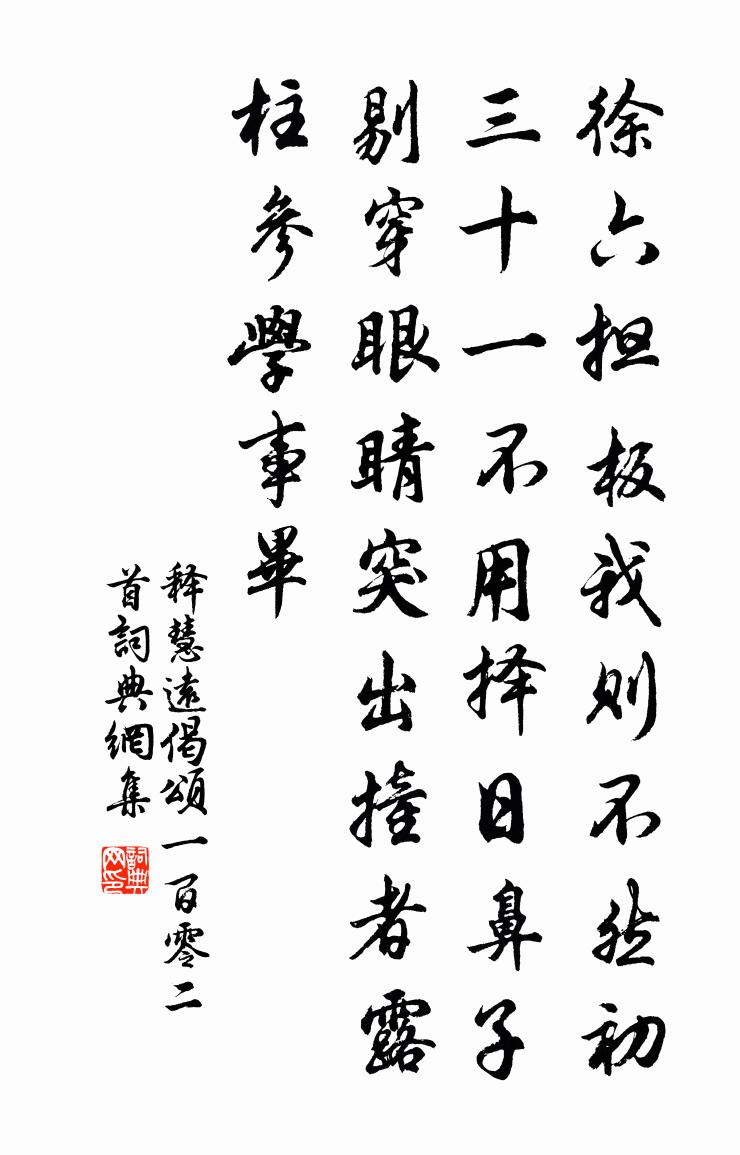 徐六担板我則不然初
三十一不用择日鼻子
剔穿眼睛突出撞者露
柱參學事畢
释慧遠偈頌一百零二
首詞典網集
詞典网印